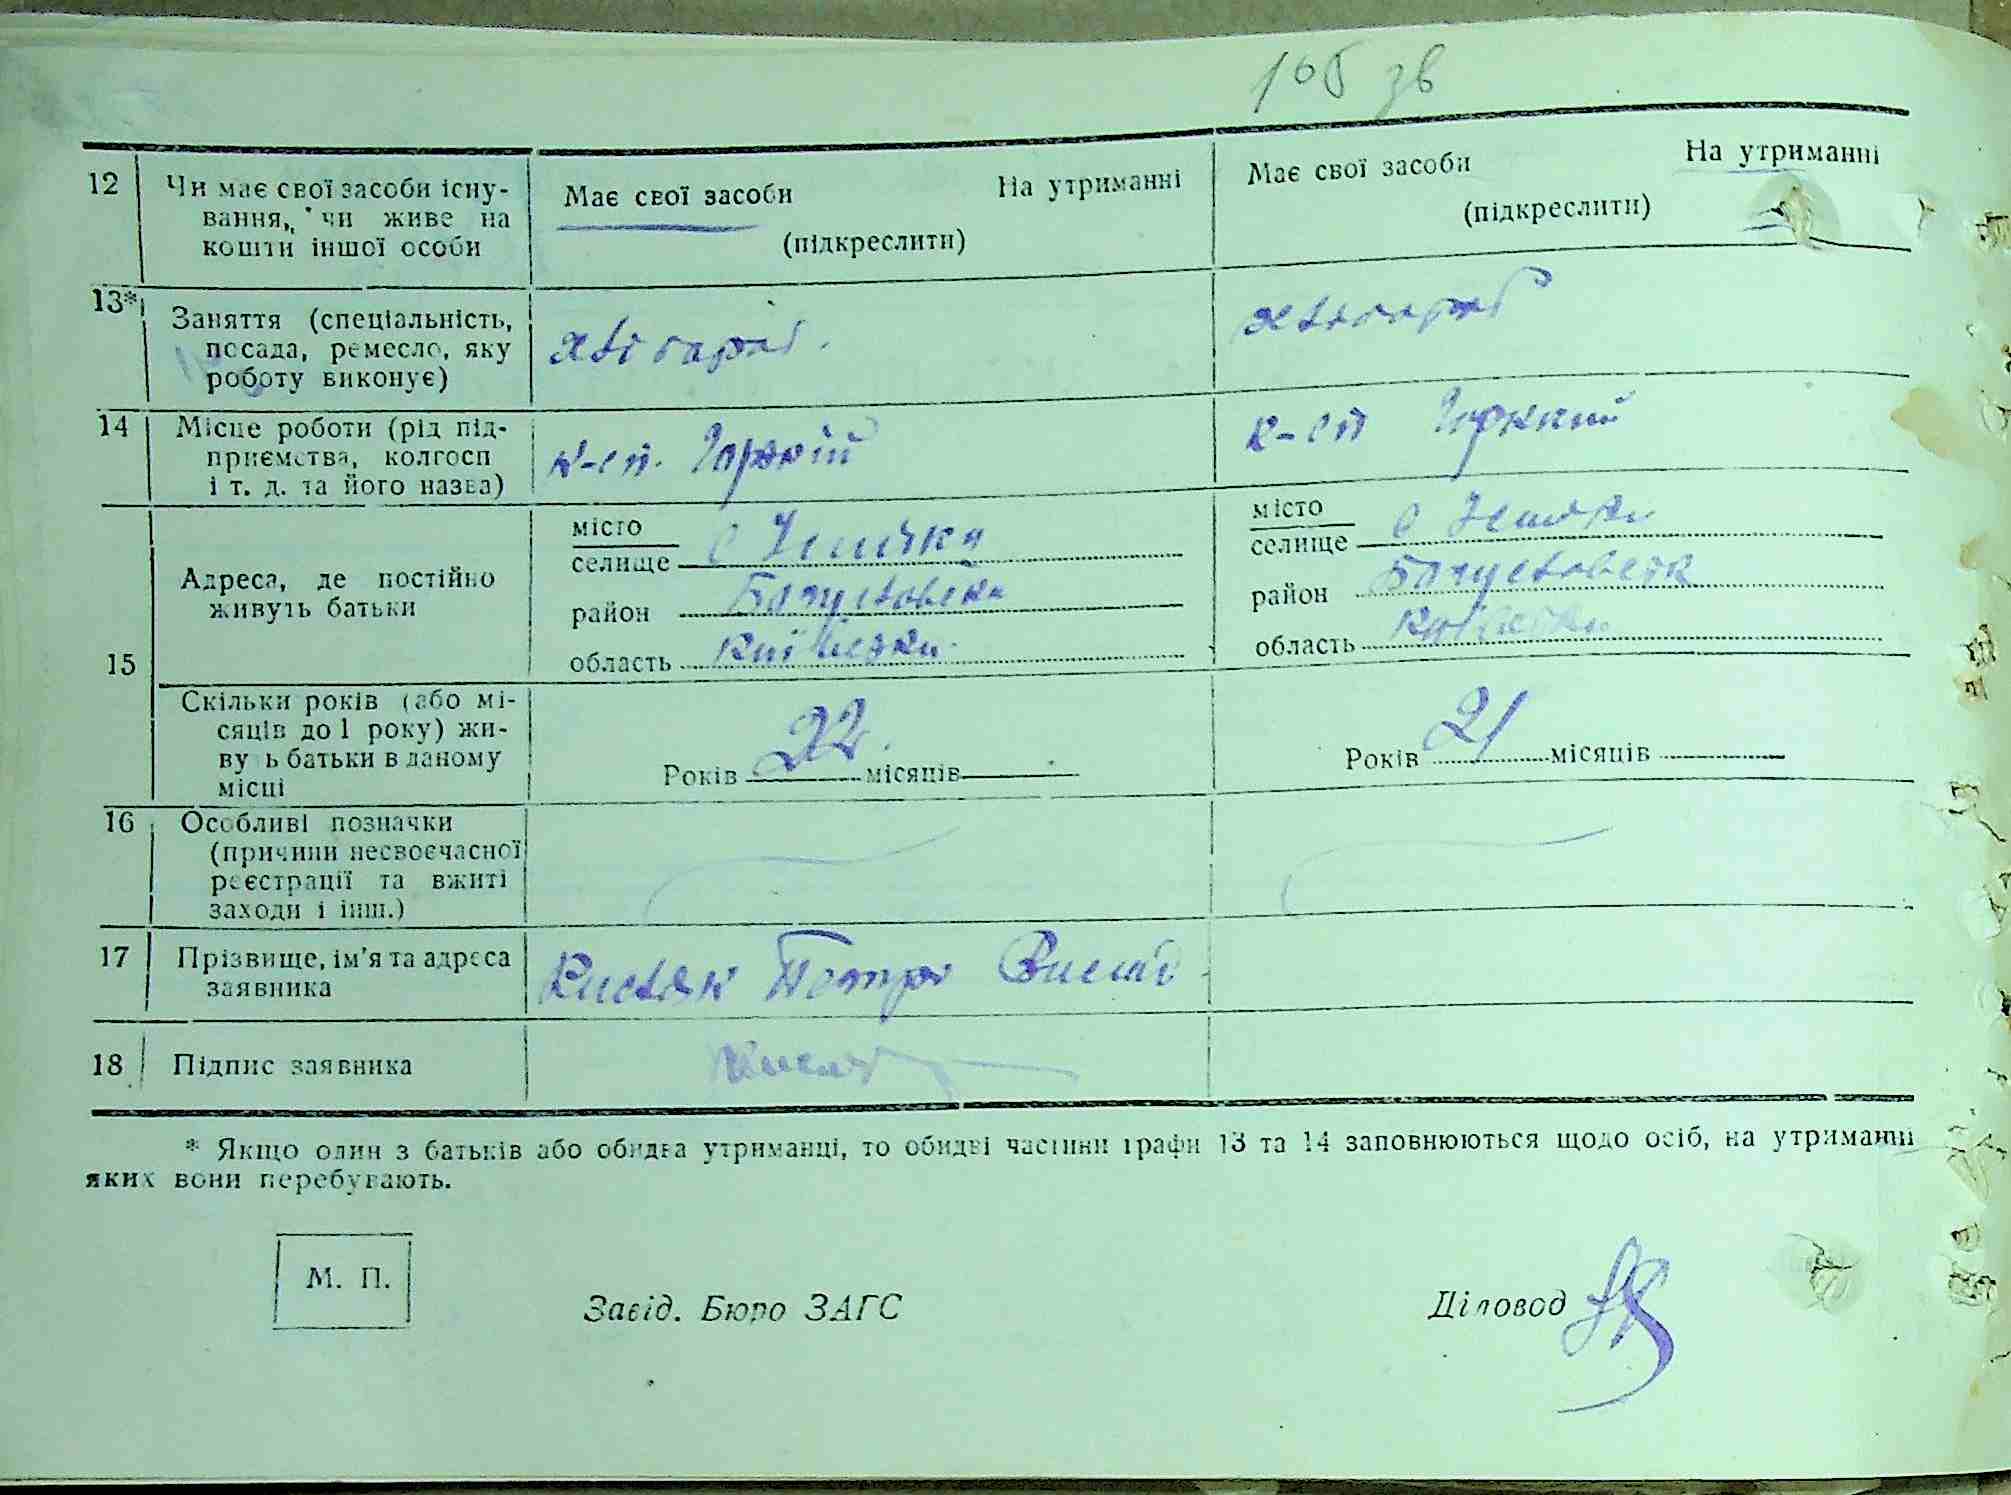 106 зв
12 Чи має свої засоби існу- Має свої засоби На утриманні Має свої засоби На утриманні
вання, чи живе на (підкреслити) (підкреслити)
кошти іншої особи
13* Заняття (спеціальність,
посада, ремесло, яку хлібороб. хлібороб
роботу виконує)
14 Місце роботи (рід під-
приємства, колгосп к-сп. Горкій к-сп Горкий
і т. д. та його назва)
15 Адреса, де постійно
живуть батьки
місто місто
селище с селище с
район Богуславськ район Богуславськ
область Київська область Київська
Скільки років (або мі-
сяців до 1 року) жи-
вуть батьки в даному Років 22 місяців Років 21 місяців
місці
16 Особливі позначки
(причини несвоєчасної
реєстрації та вжиті
заходи і інш.)
17 Прізвище, ім'я та адреса Петро
заявника
18 Підпис заявника
* Якщо один з батьків або обидва утриманці, то обидві частини графи 13 та 14 заповнюються щодо осіб, на утриманні
яких вони перебувають.
М. П.
Завід. Бюро ЗАГС Діловод